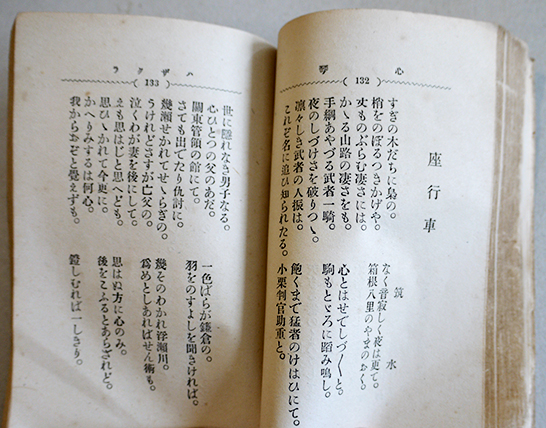 心響
( 132 )
座行車
筑水
すぎの木だちに梟の。
なく音寂しく夜は更て。
梢をのぼるつきかげや。
箱根八里のやまのおく。
丈ものぶらむ凄さには。
心とはせてしづ〱と。
かゝる山路の凄さをも。
駒もとゞろに踏み鳴し。
手綱あやづる武者一騎。
飽くまで猛者のけはひにて。
夜のしづけさを破りつゝ。
小栗判官助重と。
凛々しき武者の人振は。
これぞ名に迫ひ知られたる。
ハザクラ
( 133 )
世に隱れなき男子なる。
心ひとつの父のあだ。
一色ばらが鎌倉の。
關東管領の館にて。
羽をのすよしを聞きければ。
さても出でたり仇討に。
幾瀬せかれてせゝらぎの。
幾そのわかれ滑瀬川。
うけれどさすが亡父の。
爲めとしあればせん術も。
泣くわが妻を後にして。
えも思はじと思へども。
思はぬ方に心のみ。
思ひ〱かれて今更に。
後をこふるとあらざれど。
かへりみするは何心。
我からおぞと覺えずも。
鐙しむれば一しきり。